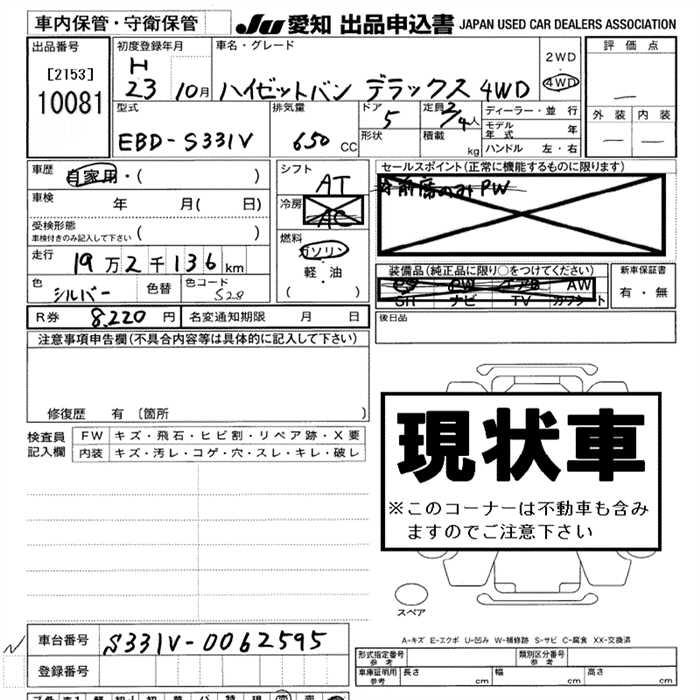 車内保管・守衛保管 JU 愛知 出品申込書 JAPAN USED CAR DEALERS ASSOCIATION
出品番号
[2153]
10081
初度登録年月
H
23 10月
車名・グレード
ハイゼットバン デラックス 4WD
2WD
・
4WD
評価点
—
外装 内装
— —
型式
EBD-S331V
排気量
650 CC
ドア
5
形状
定員 2/4人
積載 kg
ディーラー・並行
モデル年式 年
ハンドル 左・右
車歴 自家用・( )
車検 年 月( 日)
受検形態
車検付きのみ記入して下さい ( )
走行 19万2千136km
色 シルバー 色替 色コード S28
シフト
AT
冷房
AC
燃料
ガソリン
・
軽・油
( )
セールスポイント(正常に機能するものに限ります)
PW
装備品(純正品に限り○をつけてください)
PW エアB AW
ナビ TV
新車保証書
有・無
後日品
R券 8,220円 名変通知期限 月 日
注意事項申告欄(不具合内容等は具体的に記入して下さい)
修復歴 有 〔箇所 〕
検査員記入欄
FW キズ・飛石・ヒビ割・リペア跡・X要
内装 キズ・汚レ・コゲ・穴・スレ・キレ・破レ
現状車
※このコーナーは不動車も含み
ますのでご注意下さい
スペア
A-キズ E-エクボ U-凹み W-補修跡 S-サビ C-腐食 XX-交換済
車台番号 S331V-0062595
登録番号
形式指定番号 参考
類別区分番号 参考
車庫証明用 参考 長さ cm 幅 cm 高さ cm